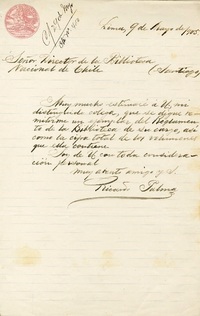 Lima, 9 de Mayo de 1905
Señor Director de la Biblioteca
Nacional de Chile
(Santiago)
Muy mucho estimaré a U, mi
distinguido colega, que se digne re-
mitirme un ejemplar del Reglamen-
to de la Biblioteca de su cargo, así
como la cifra total de los volúmenes
que ella contiene.
Soy de U, con toda considera-
ción personal
muy atento amigo y S.
Ricardo Palma